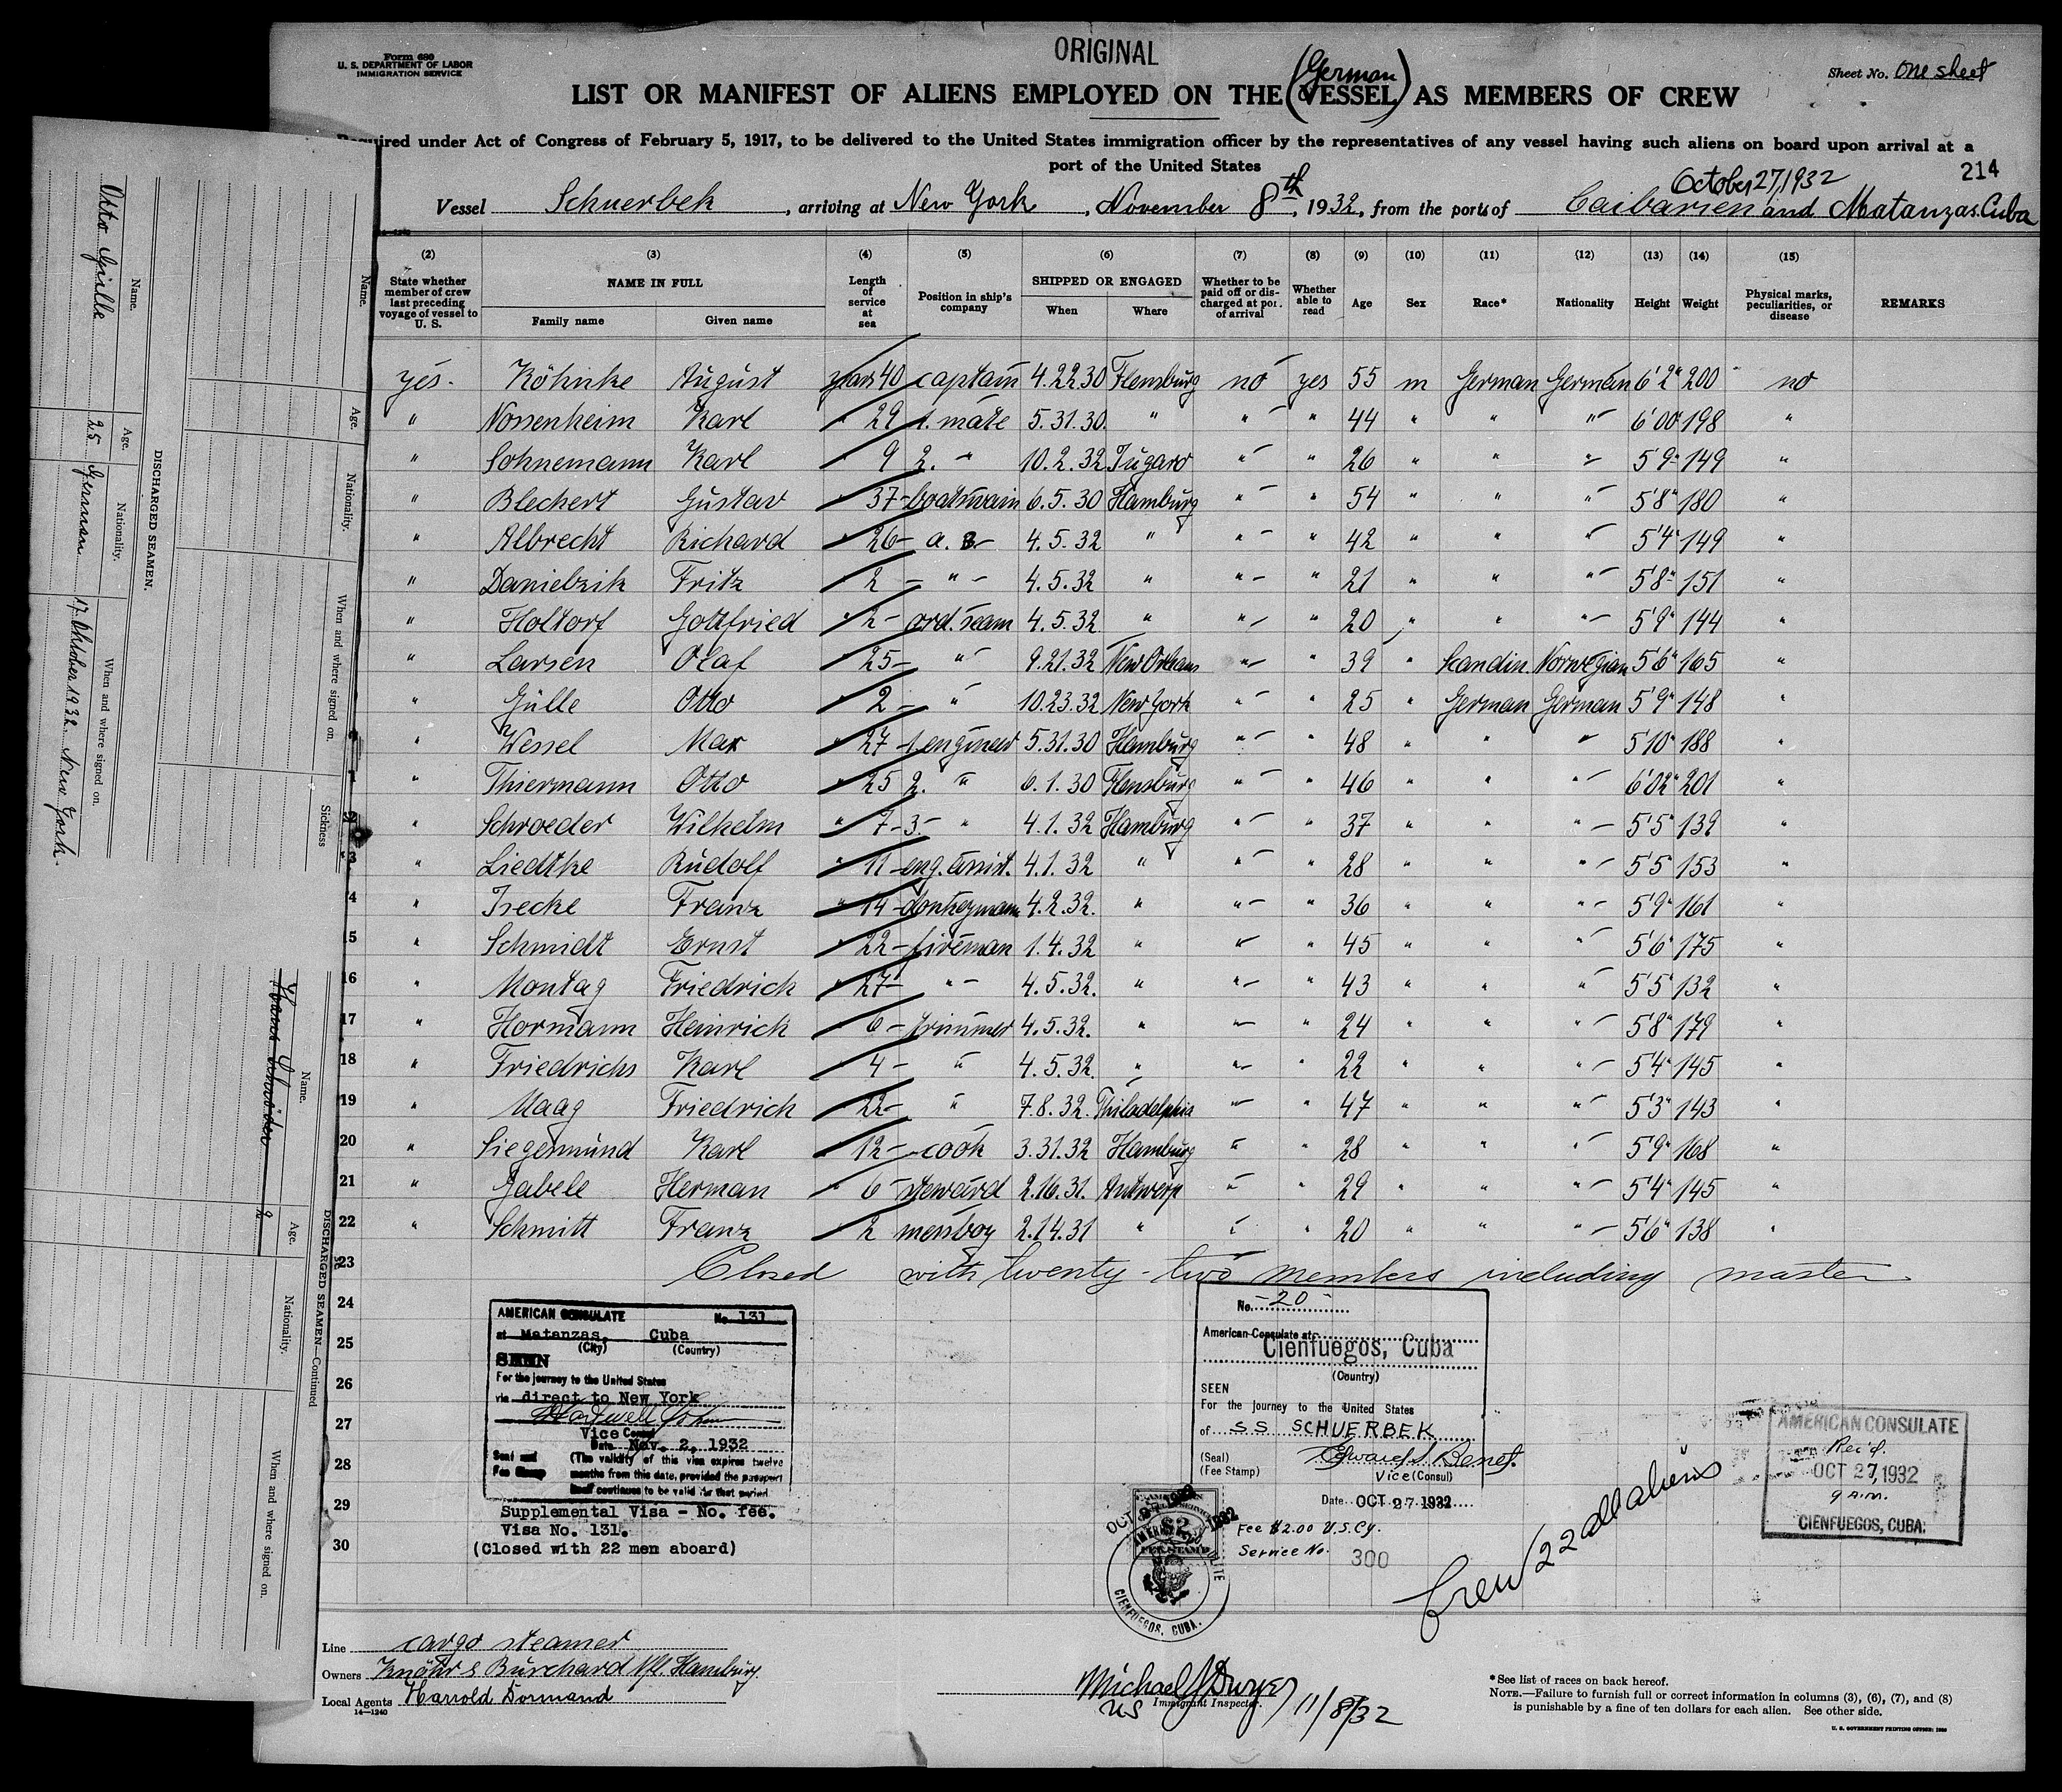 ORIGINAL
Form 680
U. S. DEPARTMENT OF LABOR
IMMIGRATION SERVICE
Sheet No. One sheet
(German)
LIST OR MANIFEST OF ALIENS EMPLOYED ON THE (VESSEL) AS MEMBERS OF CREW
Required under Act of Congress of February 5, 1917, to be delivered to the United States immigration officer by the representatives of any vessel having such aliens on board upon arrival at a
port of the United States
214
October 27, 1932
Vessel Schuerbek, arriving at New York, November 8th, 1932, from the ports of Caibarien and Matanzas. Cuba
(2) (3) (4) (5) (6) (7) (8) (9) (10) (11) (12) (13) (14) (15)
State whether member of crew last preceding voyage of vessel to U. S. | NAME IN FULL | Family name | Given name | Length of service at sea | Position in ship's company | SHIPPED OR ENGAGED | When | Where | Whether to be paid off or discharged at port of arrival | Whether able to read | Age | Sex | Race* | Nationality | Height | Weight | Physical marks, peculiarities, or disease | REMARKS
yes. Köhnke August years 40 captain 4.22.30 Flensburg no yes 55 m German German 6'2" 200 no
" Nossenheim Karl " 29 1. mate 5.31.30. " " " 44 " " " 6'00 198 "
" Sohnemann Karl " 9 2. " 10.2.32 " " 26 " " " 5'9" 149 "
" Blechert Gustav " 37 boatswain 6.5.30 Hamburg " " 54 " " " 5'8" 180 "
" Albrecht Richard " 26 a. B. 4.5.32 " " " 42 " " " 5'4" 149 "
" Danielzik Fritz " 2 " 4.5.32 " " " 21 " " " 5'8" 151 "
" Holtorf Gottfried " 2 ord. seam 4.5.32 " " " 20 " " " 5'9" 144 "
" Larsen Olaf " 25 " 9.21.32 New Orleans " " 39 " Scandin. Norwegian 5'6" 165 "
" Gülle Otto " 2 " 10.23.32 New York " " 25 " German German 5'9" 148 "
" Wessel Max " 27 1. engineer 5.31.30 Hamburg " " 48 " " " 5'10" 188 "
" Thiermann Otto " 25 2. " 6.1.30 Flensburg " " 46 " " " 6'02" 201 "
" Schroeder Wilhelm " 7 3. " 4.1.32 Hamburg " " 37 " " " 5'5" 139 "
" Liedtke Rudolf " 11 eng. assist. 4.1.32 " " " 28 " " " 5'5" 153 "
4 " Isecke Franz " 14 donkeyman 4.2.32. " " " 36 " " " 5'9" 161 "
15 " Schmidt Ernst " 22 fireman 1.4.32 " " " 45 " " " 5'6" 175 "
16 " Montag Friedrich " 27 " 4.5.32. " " " 43 " " " 5'5" 132 "
17 " Hormann Heinrich " 6 trimmer 4.5.32. " " " 24 " " " 5'8" 179 "
18 " Friedrichs Karl " 4 " 4.5.32. " " " 22 " " " 5'4" 145 "
19 " Maag Friedrich " 22 " 7.8.32. Philadelphia " " 47 " " " 5'3" 143 "
20 " Siegesmund Karl " 12 cook 3.31.32 Hamburg " " 28 " " " 5'9" 168 "
21 " Gabele Herman " 6 steward 2.16.31. Antwerp " " 29 " " " 5'4" 145 "
22 " Schmitt Franz " 2 messboy 2.14.31 " " " 20 " " " 5'6" 138 "
23 Closed with twenty-two members including master
24
25
26
27
28
29
30
AMERICAN CONSULATE No. 131
at Matanzas, Cuba
(City) (Country)
SEEN
For the journey to the United States
via direct to New York
Vice Consul
Date Nov. 2, 1932
Seal and Fee Stamp
(The validity of this visa expires twelve
months from this date, provided the passport
itself continues to be valid for that period
Supplemental Visa - No. fee.
Visa No. 131.
(Closed with 22 men aboard)
No. -20-
American Consulate at
Cienfuegos, Cuba
(Country)
SEEN
For the journey to the United States
of SS SCHUERBEK
(Seal)
(Fee Stamp)
Vice (Consul)
Date OCT 27 1932
Fee $2.00 U.S. Cy.
Service No. 300
$2
FEE STAMP
CIENFUEGOS, CUBA.
AMERICAN CONSULATE
Rec'd.
OCT 27, 1932
9 A.M.
CIENFUEGOS, CUBA.
Crew 22 all aliens
Line cargo steamer
Owners Knöhr & Burchard Nfl. Hamburg.
Local Agents Harrold Dormand
14—1240
Michael J Dwyer
US Immigrant Inspector. 11/8/32
*See list of races on back hereof.
NOTE.—Failure to furnish full or correct information in columns (3), (6), (7), and (8)
is punishable by a fine of ten dollars for each alien. See other side.
U. S. GOVERNMENT PRINTING OFFICE
DISCHARGED SEAMEN.
Name. Age. Nationality. When and where signed on.
Otto Gülle 25 German 17. Oktober 1932. New York.
Name. Age. Nationality. When and where signed on. Sickness
DISCHARGED SEAMEN—Continued
Name. Age. Nationality. When and where signed on.
Hans Schröder